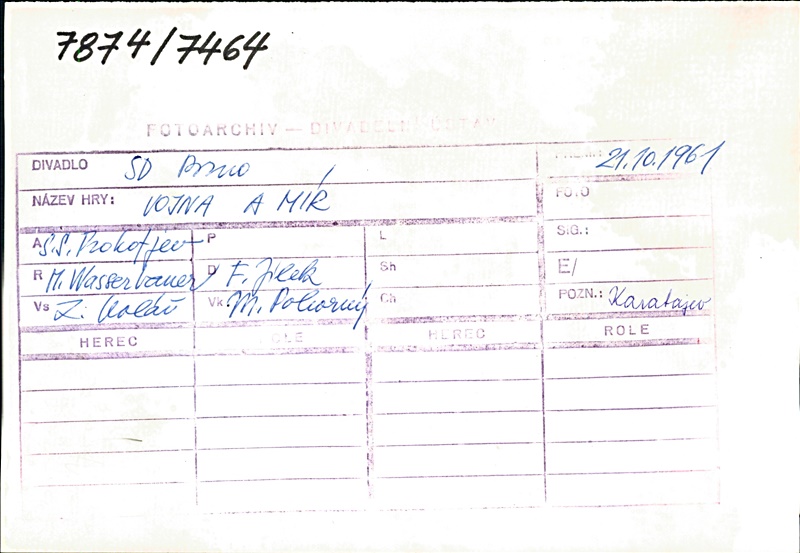 7874/7464
FOTOARCHIV — DIVADELNÍ ÚSTAV
DIVADLO SD Brno PREM.: 21.10.1961
NÁZEV HRY: VOJNA A MÍR FOTO
A S.S. Prokofjev P L SIG.:
R M. Wasserbauer D F. Jílek Sh E/
Vs Z. Kolář Vk M. Pokorný Ch POZN.: Karatajev
HEREC ROLE HEREC ROLE